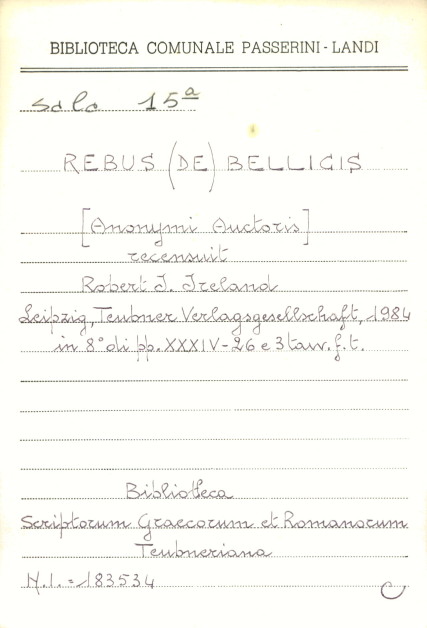 BIBLIOTECA COMUNALE PASSERINI - LANDI
Sala 15ª
REBUS (DE) BELLICIS
[Anonymi Auctoris]
recensuit
Robert I. Ireland
Leipzig, Teubner Verlagsgesellschaft, 1984
in 8° di pp. XXXIV-26 e 3 tavv. f. t.
Biblioteca
Scriptorum Graecorum et Romanorum
Teubneriana
N.I. = 183534
C